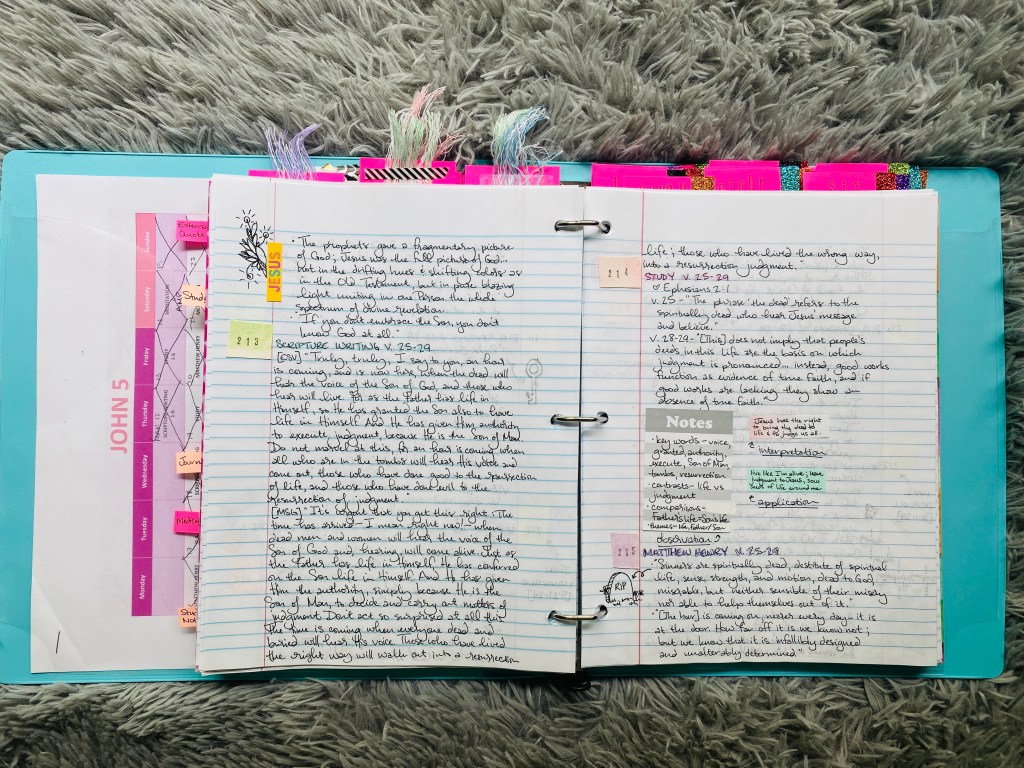 JOHN 5
Sunday
Saturday
Friday
Thursday
Wednesday
Tuesday
Monday
JESUS
• The prophets gave a fragmentary picture
of God; Jesus was the full picture of God...
not in the drifting hues & shifting colors as
in the Old Testament, but in pure blazing
light uniting in one Person the whole
spectrum of divine revelation.
• "If you don't embrace the Son, you don't
know God at all."
213
SCRIPTURE WRITING V. 25-29
[ESV] "Truly, truly, I say to you, an hour
is coming, and is now here, when the dead will
hear the voice of the Son of God, and those who
hear will live. For as the Father has life in
Himself, so He has granted the Son also to have
life in Himself. And He has given Him authority
to execute judgment, because He is the Son of Man.
Do not marvel at this, for an hour is coming when
all who are in the tombs will hear His voice and
come out, those who have done good to the resurrection
of life, and those who have done evil to the
resurrection of judgment."
[MSG] "It's urgent that you get this right: The
time has arrived—I mean right now!—when
dead men and women will hear the voice of the
Son of God and, hearing, will come alive. Just as
the Father has life in Himself, He has conferred
on the Son life in Himself. And He has given
Him the authority, simply because He is the
Son of Man, to decide and carry out matters of
judgment. Don't act so surprised at all this.
The time is coming when everyone dead and
buried will hear His voice. Those who have lived
the right way will walk out into a resurrection
life; those who have lived the wrong way,
into a resurrection judgment."
214
STUDY V. 25-29
Ephesians 2:1
v. 25 - "The phrase 'the dead' refers to the
spiritually dead who hear Jesus' message
and believe."
v. 28-29 - "[This] does not imply that people's
deeds in this life are the basis on which
judgment is pronounced... instead, good works
function as evidence of true faith, and if
good works are lacking they show an
absence of true faith."
Notes
• key words - voice,
granted, authority,
execute, Son of Man
tombs, resurrection
• contrasts - life vs
judgment
• comparison -
Father's life = Son's life
• themes - life, Father/Son
observation
Jesus has the right
to bring the dead to
life & to judge us all.
interpretation
live like I'm alive; leave
judgment to Jesus, sow
seeds of life around me
application
215
MATTHEW HENRY V. 25-29
RIP
• "Sinners are spiritually dead, destitute of spiritual
life, sense, strength, and motion, dead to God,
miserable, but neither sensible of their misery
nor able to help themselves out of it."
• "[The hour] is coming on, nearer every day - it is
at the door. How far off it is we know not;
but we know that it is infallibly designed
and unalterably determined."